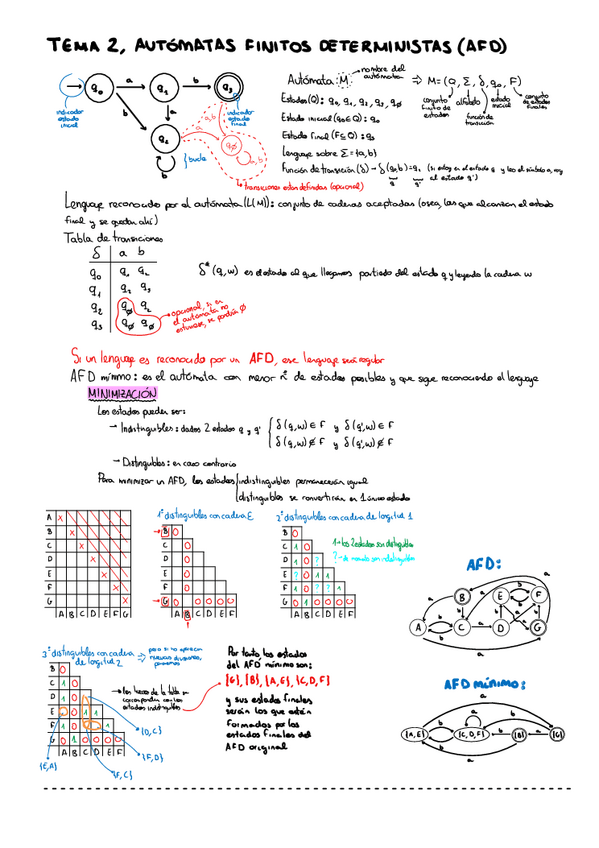 TEMA 2, AUTÓMATAS FINITOS DETERMINISTAS (AFD)
q0 a q1 b q3
b a a a,b
q2 qø a,b
b
indicador estado inicial
indicador estado final
} bucle
transiciones estan definidas (opcional)
Autómata: M → nombre del autómata ⇒ M=(Q, Σ, δ, q0, F)
conjunto finito de estados
alfabeto
función de transición
estado inicial
conjunto de estados finales
Estados (Q): q0, q1, q2, q3, qø
Estado inicial (q0∈Q): q0
Estado final (F⊆Q): q3
Lenguaje sobre Σ={a,b}
Función de transición (δ) → δ(q0,b)=q2 (si estoy en el estado q y leo el símbolo a, voy al estado q')
q q'
Lenguaje reconocido por el autómata (L(M)): conjunto de cadenas aceptadas (osea, las que alcanzan el estado
final y se quedan ahí)
Tabla de transiciones
δ a b
q0 q1 q2
q1 q2 q3
q2 qø q2
q3 qø qø
opcional, si en el autómata no estuviese, se pondría Ø
δ*(q,w) es el estado al que llegamos partiendo del estado q y leyendo la cadena w
Si un lenguaje es reconocido por un AFD, ese lenguaje será regular
AFD mínimo: es el autómata con menor nº de estados posibles y que sigue reconociendo el lenguaje
MINIMIZACIÓN
Los estados pueden ser:
→ Indistinguibles: dados 2 estados q y q' { δ(q,w)∈F y δ(q',w)∈F
δ(q,w)∉F y δ(q',w)∉F
→ Distinguibles: en caso contrario
Para minimizar un AFD, los estados indistinguibles permanecerán igual
distinguibles se convertirán en 1 único estado
A X
B X
C X
D X
E X
F X
G X
A B C D E F G
1º distinguibles con cadena E
B 0
C 0
D 0
E 0
F 0
G 0 0 0 0 0
A B C D E F
2º distinguibles con cadena de longitud 1
B 0
C 1 0
D 1 0 ?
E ? 0 1 1
F 1 0 ? ? 1
G 0 1 0 0 0 0
A B C D E F
1 → los 2 estados son distinguibles
? → de momento son indistinguibles
AFD:
A B C D E F G
a b
3º distinguibles con cadena de longitud 2
B 0
C 1 0
D 1 0
E 0 1 1
F 1 0 1
G 0 1 0 0 0 0
A B C D E F
{E,A}
{F,C}
{F,D}
{D,C}
Por tanto los estados
del AFD mínimo son:
{G}, {B}, {A,E}, {C,D,F}
y sus estados finales
serán los que están
formados por los
estados finales del
AFD original
AFD mínimo:
{A,E} {C,D,F} {B} {G}
a b